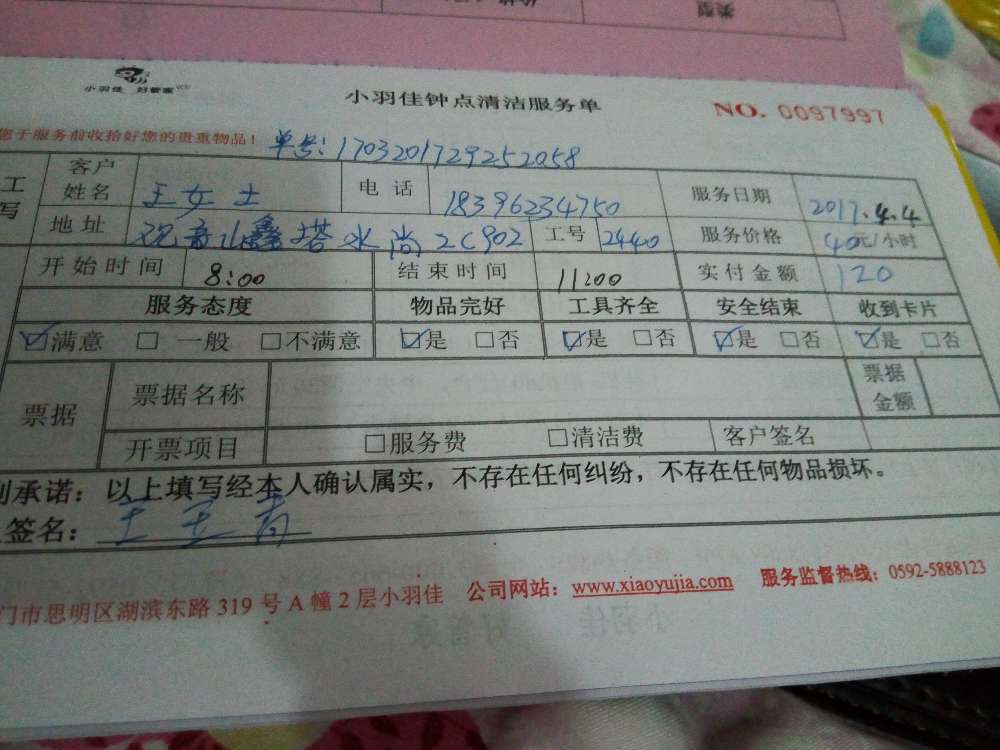 类型
小羽佳 好管家
小羽佳钟点清洁服务单
NO. 0097997
您于服务前收拾好您的贵重物品!
单号:1703201729252058
工
写
客户姓名 王女士 电话 18396234750 服务日期 2017.4.4
地址 观音山鑫塔水尚2C902 工号 2440 服务价格 40元/小时
开始时间 8:00 结束时间 11:00 实付金额 120
服务态度 物品完好 工具齐全 安全结束 收到卡片
☑满意 □一般 □不满意 ☑是 □否 ☑是 □否 ☑是 □否 ☑是 □否
票据 票据名称 票据金额
开票项目 □服务费 □清洁费 客户签名
承诺:以上填写经本人确认属实,不存在任何纠纷,不存在任何物品损坏。
签名:王玉青
门市思明区湖滨东路 319 号 A 幢 2 层小羽佳 公司网站:www.xiaoyujia.com 服务监督热线:0592-5888123